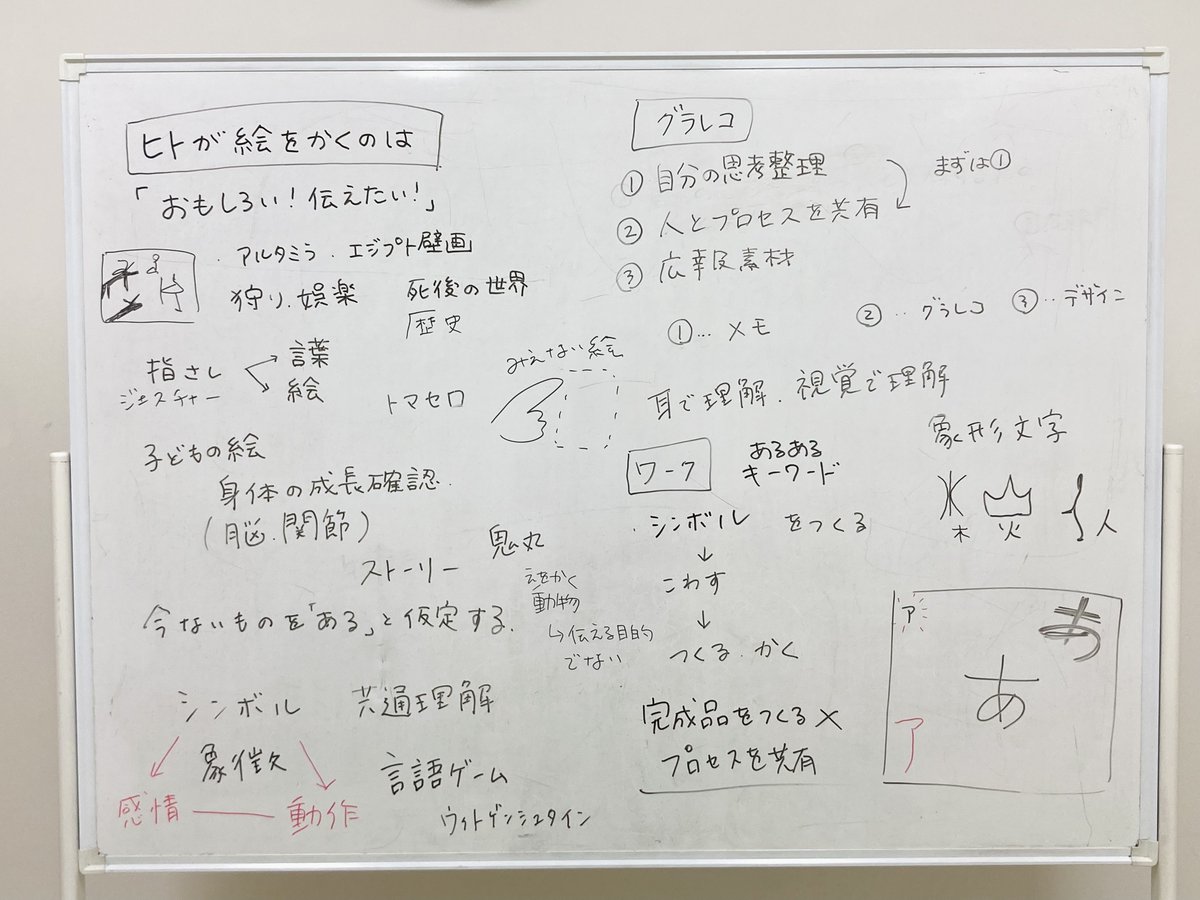 ヒトが絵をかくのは
「おもしろい！伝えたい！」
・アルタミラ・エジプト壁画
狩り・娯楽
死後の世界
歴史
指さし
ジェスチャー
言葉
絵
トマセロ
みえない絵
子どもの絵
身体の成長確認.
(脳.関節)
ストーリー
鬼丸
今ないものを「ある」と仮定する.
えをかく
動物
↳伝える目的
でない
シンボル
共通理解
象徴
感情
動作
言語ゲーム
ウィトゲンシュタイン
グラレコ
① 自分の思考整理
② 人とプロセスを共有
③ 広報素材
まずは①
①… メモ
②‥グラレコ
③‥デザイン
耳で理解.視覚で理解
ワーク
あるある
キーワード
・シンボル をつくる
↓
こわす
↓
つくる・かく
完成品をつくる×
プロセスを共有
象形文字
木
火
人
ア
あ
あ
ア